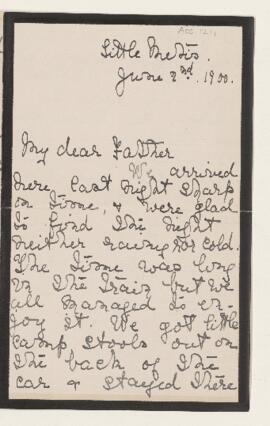 Acc. 1211
Little Metis.
June 2nd. 1900.
My dear Father
We arrived
here last night sharp
on time, & were glad
to find the night
neither raining nor cold.
The time was long
in the train but we
all managed to en-
joy it. We got little
camp stools out on
the back of the
car & stayed there